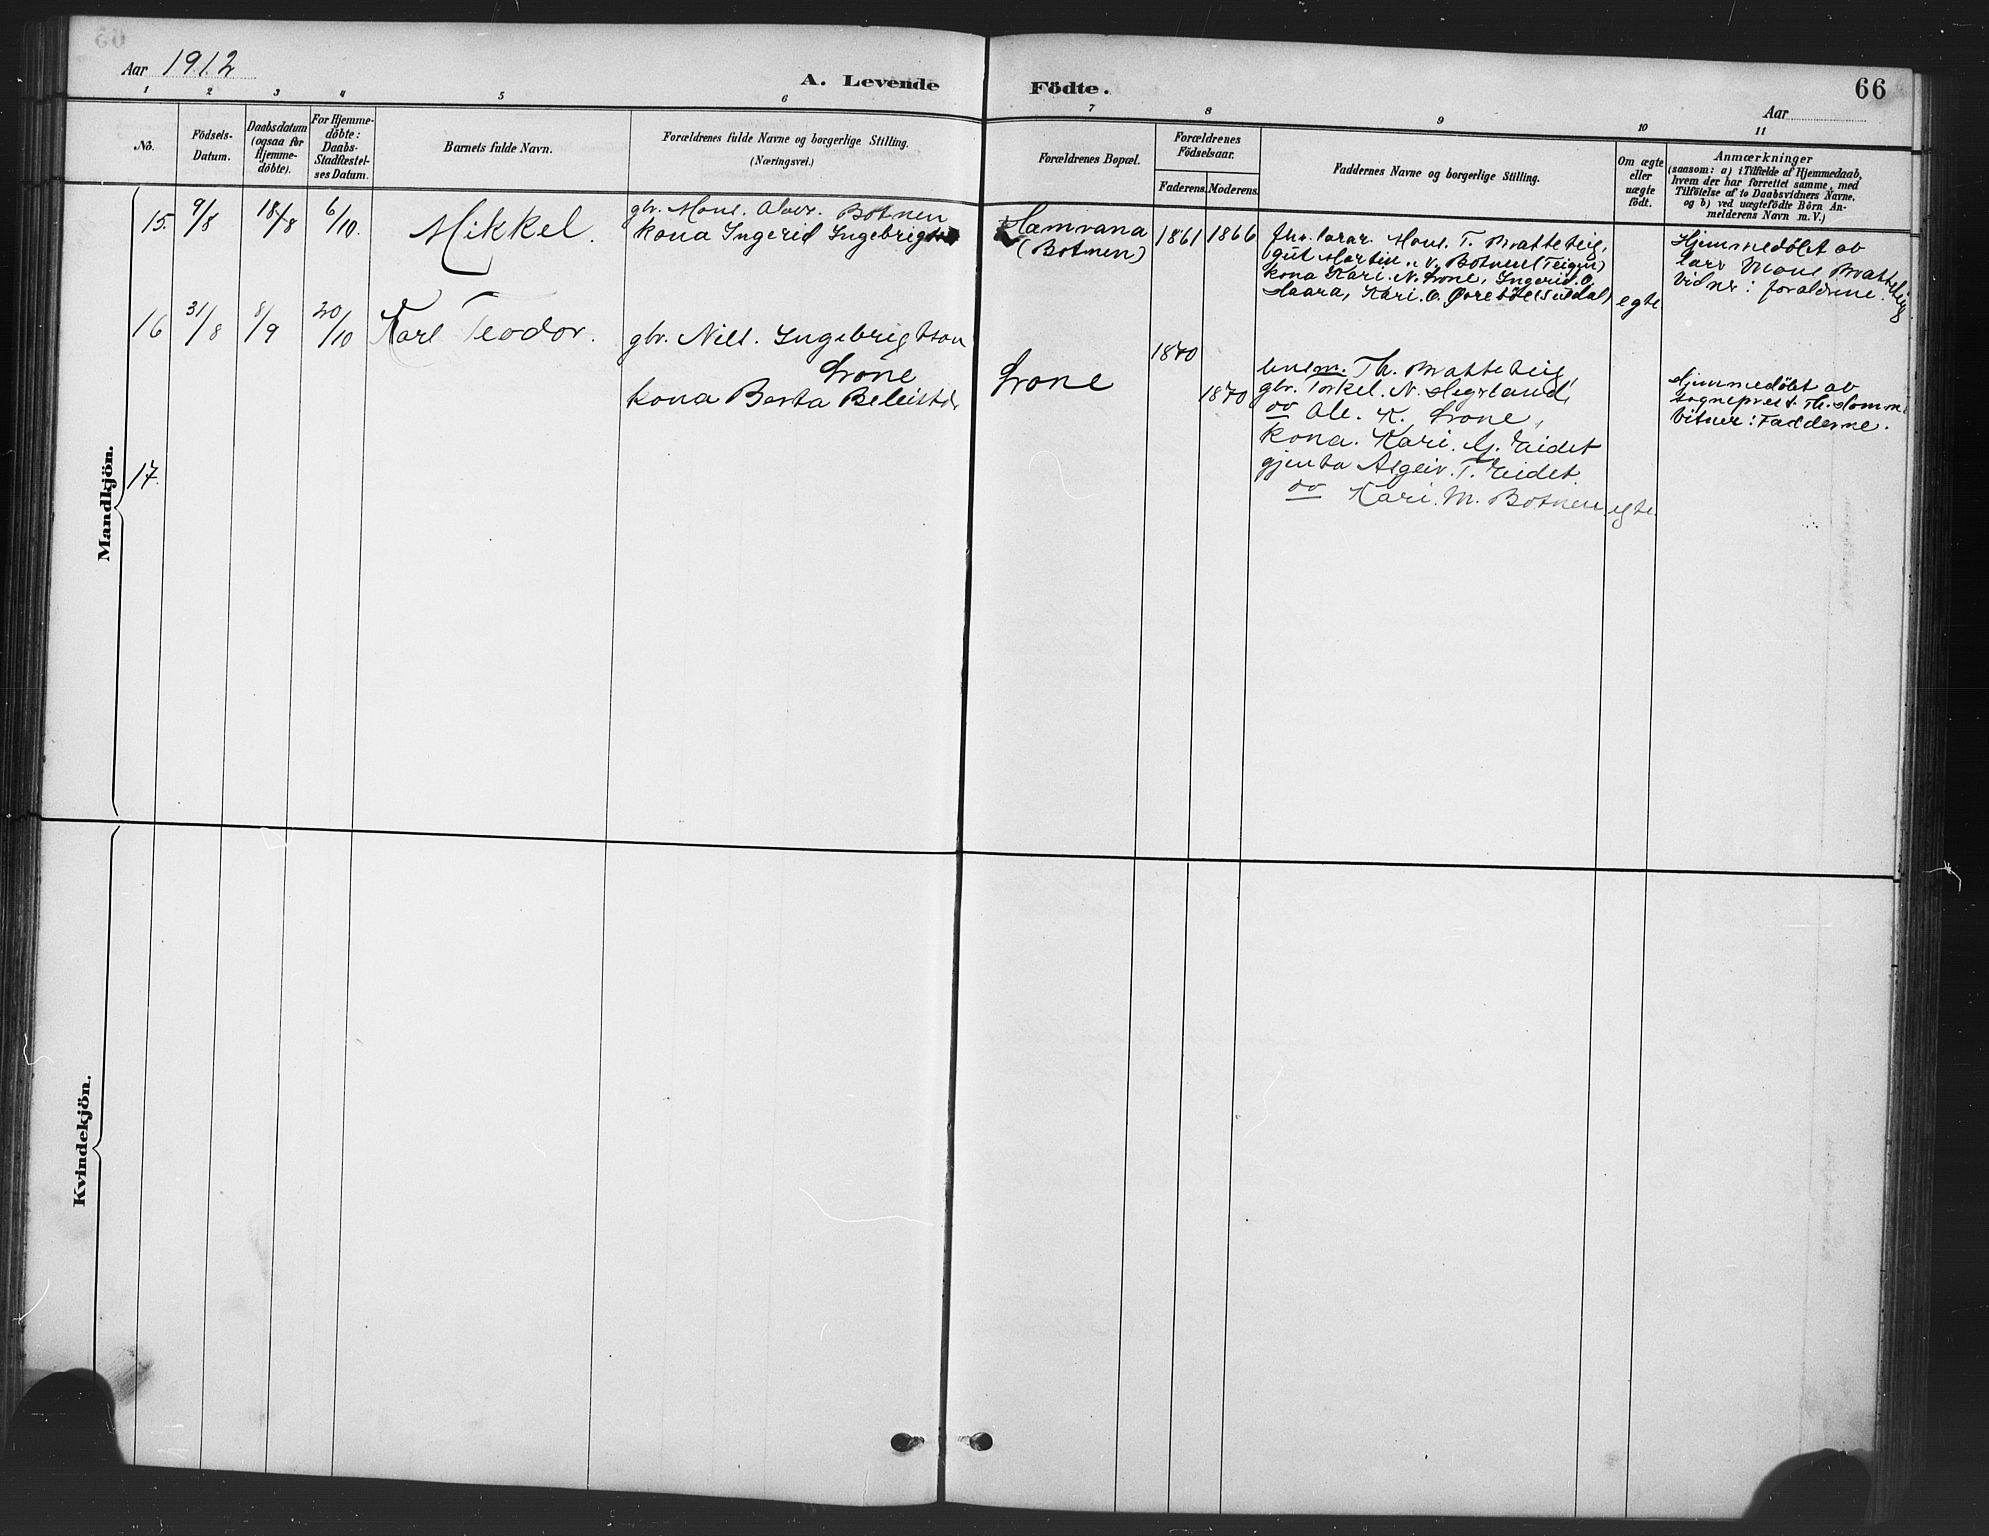 Aar 1912
A. Levende Födte.
66
Aar
1 2 3 4 5 6 7 8 9 10 11
No.
Födsels-Datum.
Daabsdatum (ogsaa for Hjemme-döbte).
For Hjemme-döbte: Daabs-Stadfæstel-ses Datum.
Barnets fulde Navn.
Forældrenes fulde Navne og borgerlige Stilling.
(Næringsvei.)
Forældrenes Bopæl.
Forældrenes Födselsaar.
Faderens. Moderens.
Faddernes Navne og borgerlige Stilling.
Om ægte eller uægte födt.
Anmærkninger
(saasom: a) i Tilfælde af Hjemmedaab,
hvem der har forrettet samme, med
Tilföielse af to Daabsvidners Navne,
og b) ved uægtefödte Börn An-
melderens Navn m. V.)
Mandkjön.
15. 9/8 18/8 6/10. Mikkel.
gbr. Mons. Botnen
kona Ingerid
Hamrana
(Botnen)
1861 1866
Mons. T. Bratteteig,
gut Martin Botnen (Teigen)
kona Kari. N. Lrone, Ingerid. O.
Haara, Kari. O. Øvrebø (Suldal) egte
Hjemmedøbt av
lærar Mons Bratteteig
Vidner: foraldrene.
16 31/8 8/9 20/10 Karl Teodor.
gbr. Nils. Ingebrigtson
Lrone
kona Berta
Lrone
1870
1870
Th. Bratteteig
gbr. Torkel. N. Hegrland,
do Ole. K. Lrone,
kona. Kari. G. Eidet
gjenta Asgeir. T. Eidet.
do Kari. M. Botnen egte.
Hjemmedøbt av
sogneprest Th.
Vitner: Fadderne.
17.
Kvindekjön.